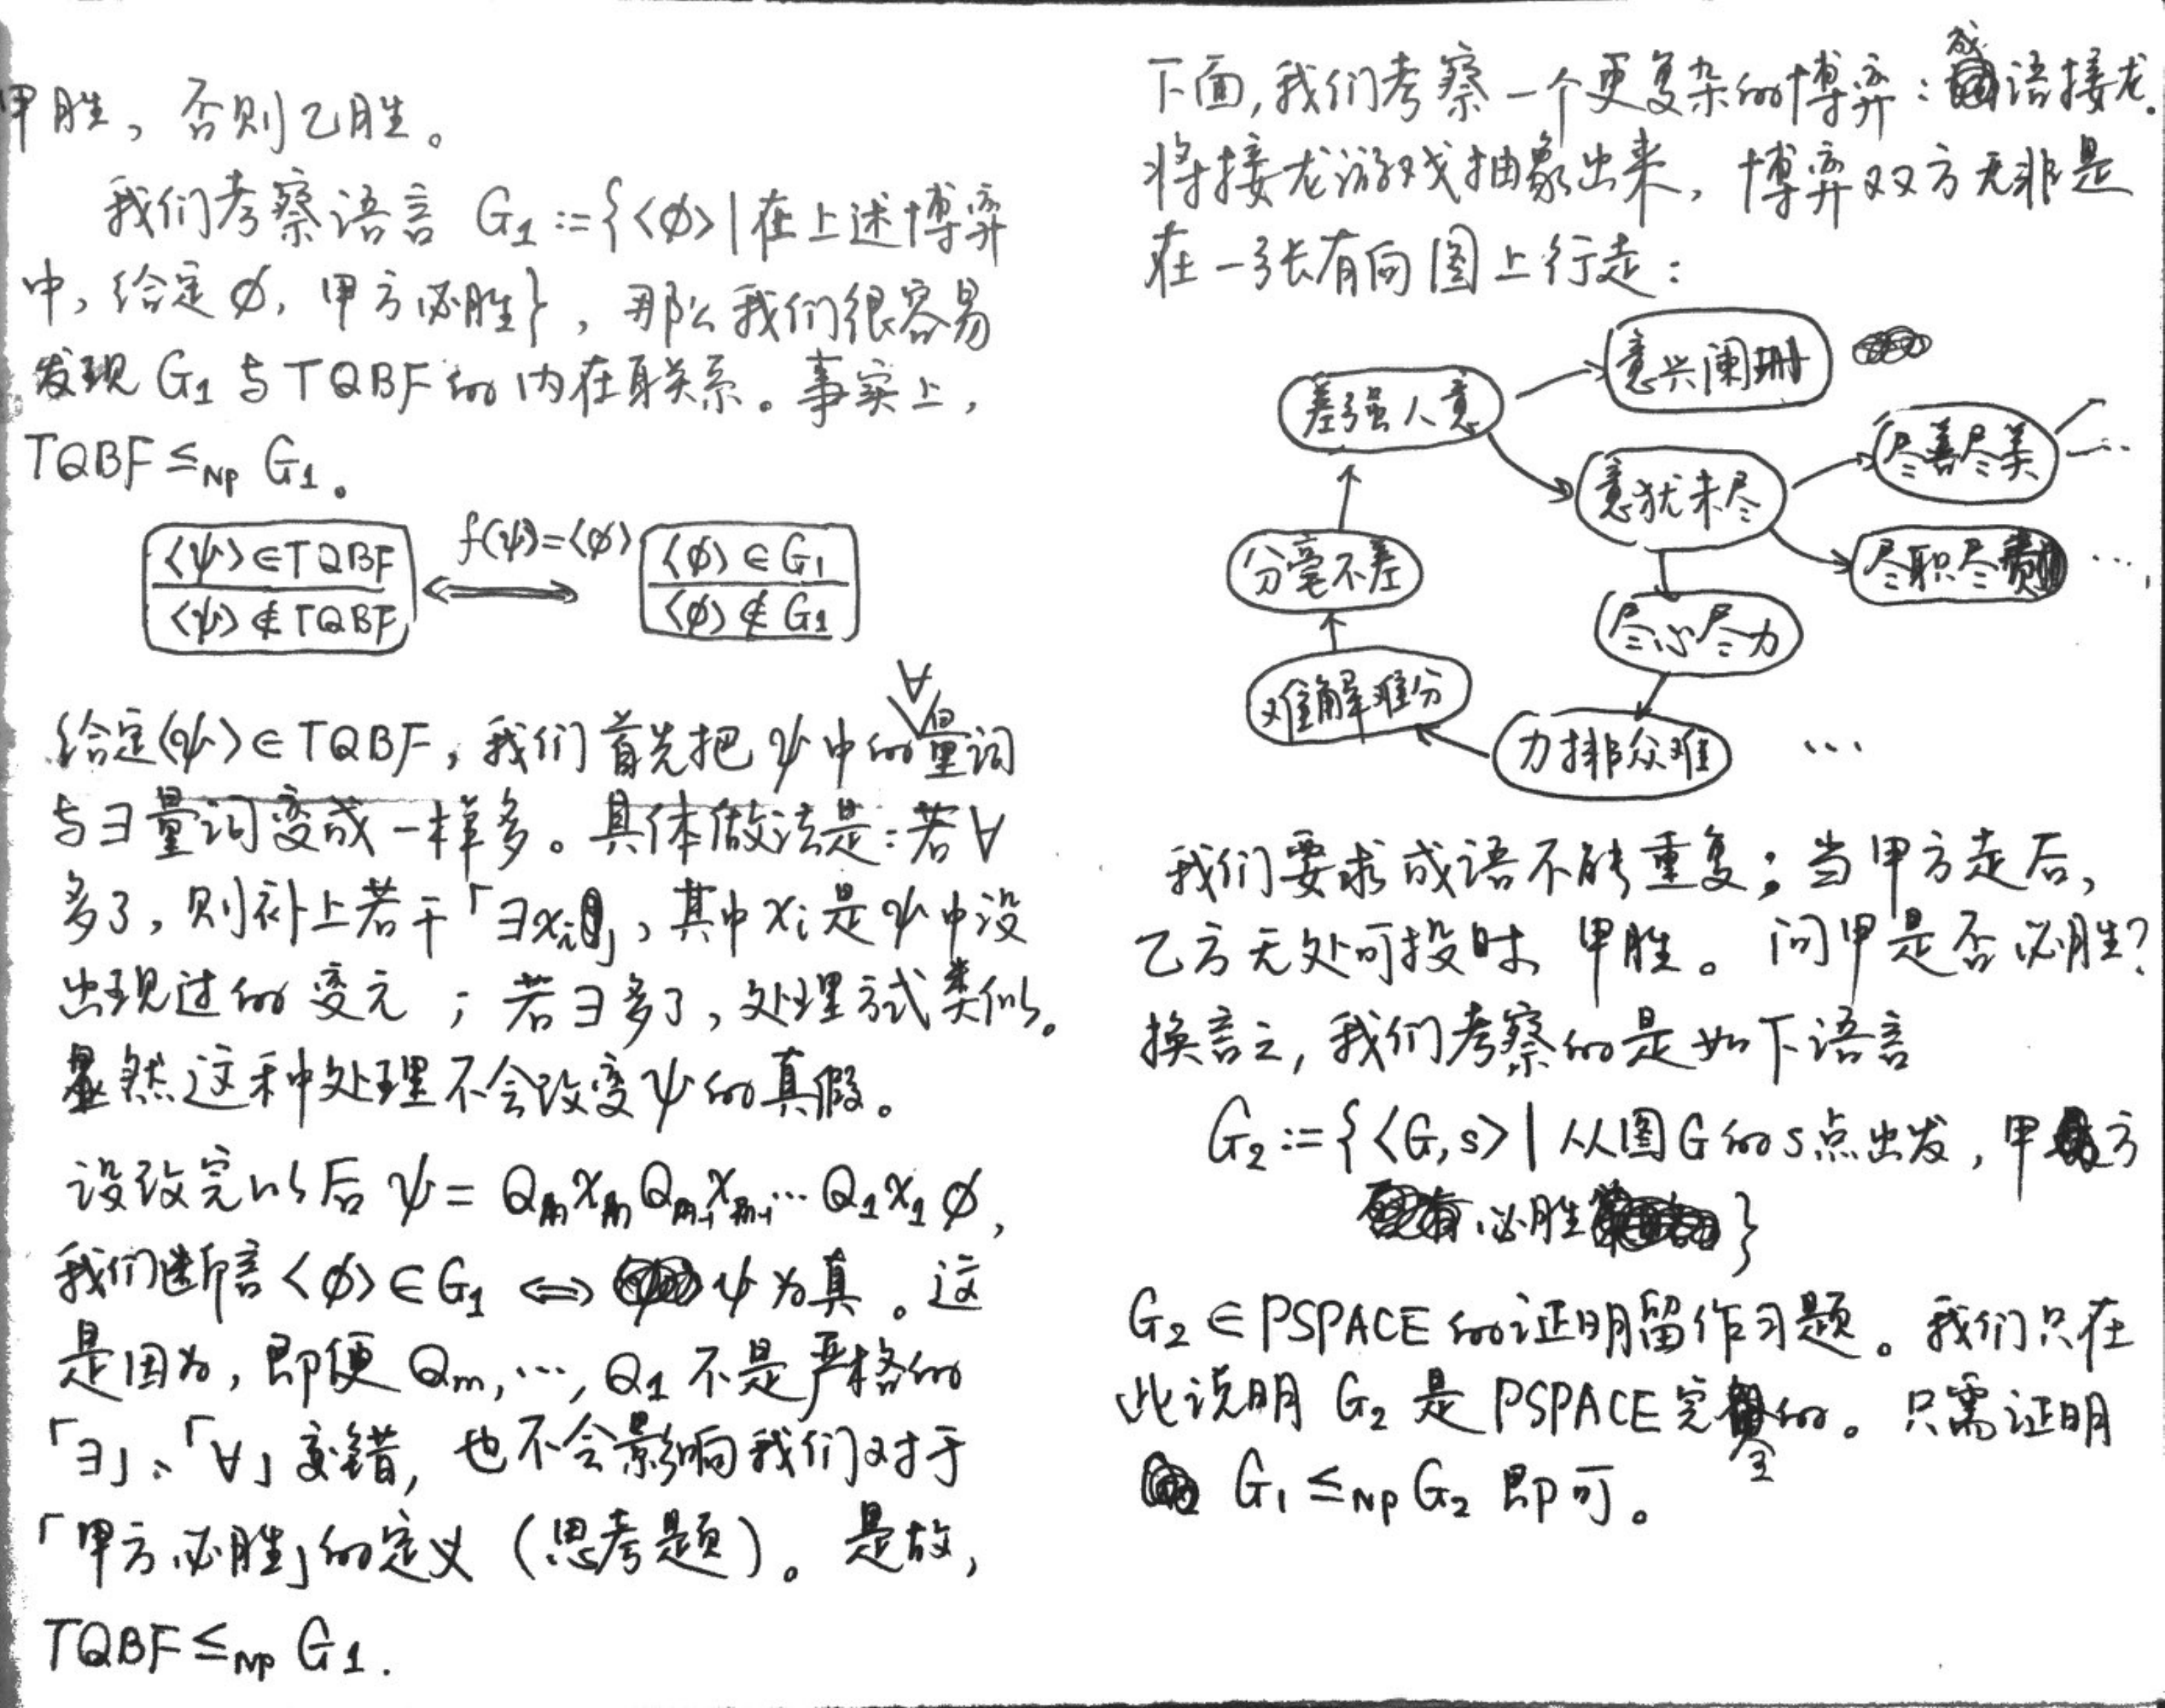 甲胜，否则乙胜。
我们考察语言 G₁ := {<φ>|在上述博弈
中，给定φ，甲方必胜}，那么我们很容易
发现 G₁ 与 TQBF 的内在联系。事实上，
TQBF ≤ₙₚ G₁。
<ψ>∈TQBF
<ψ>∉TQBF
f(ψ)=<φ>
<φ>∈G₁
<φ>∉G₁
给定<ψ>∈TQBF，我们首先把ψ中的∀量词
与∃量词变成一样多。具体做法是：若∀
多了，则补上若干「∃xᵢ」，其中xᵢ是ψ中没
出现过的变元；若∃多了，处理方式类似。
显然这种处理不会改变ψ的真假。
设改完以后 ψ = QₘxₘQₘ₋₁xₘ₋₁…Q₁x₁φ，
我们断言<φ>∈G₁ ⇔ ψ为真。这
是因为，即便 Qₘ,…,Q₁ 不是严格的
「∃」、「∀」交错，也不会影响我们对于
「甲方必胜」的定义（思考题）。是故，
TQBF ≤ₙₚ G₁.
下面，我们考察一个更复杂的博弈：成语接龙.
将接龙游戏抽象出来，博弈双方无非是
在一张有向图上行走：
意兴阑珊
差强人意
尽善尽美
意犹未尽
…
分毫不差
尽职尽责
…
尽心尽力
难解难分
力排众难
…
我们要求成语不能重复；当甲方走后，
乙方无处可投时，甲胜。问甲是否必胜？
换言之，我们考察的是如下语言
G₂ := {<G,s>|从图G的s点出发，甲方
必胜}
G₂ ∈ PSPACE 的证明留作习题。我们只在
此说明 G₂ 是 PSPACE 完全的。只需证明
G₁ ≤ₙₚ G₂ 即可。